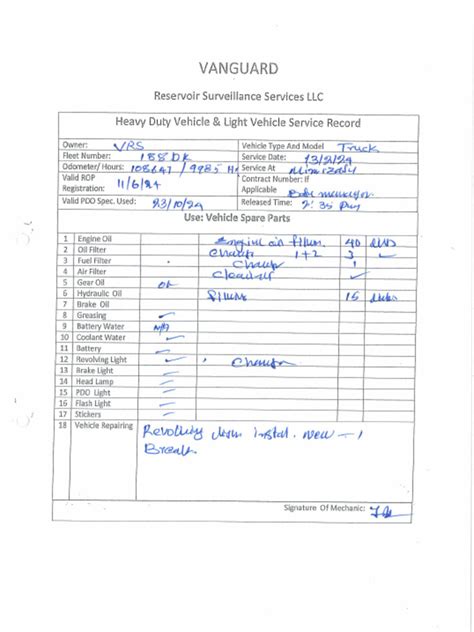 VANGUARD
Reservoir Surveillance Services LLC
Heavy Duty Vehicle & Light Vehicle Service Record
Owner: VRS Vehicle Type And Model Truck
Fleet Number: 188 DK Service Date: 13/2/24
Odometer/ Hours: 108647 / 9985 Hr Service At
Valid ROP Registration: 11/6/24 Contract Number: If Applicable
Valid PDO Spec. Used: 23/10/24 Released Time: 2:35 Pm
Use: Vehicle Spare Parts
1 Engine Oil 40
2 Oil Filter 1+2 3 ✓
3 Fuel Filter
4 Air Filter
5 Gear Oil ok
6 Hydraulic Oil 15
7 Brake Oil
8 Greasing ✓
9 Battery Water N/A
10 Coolant Water ✓
11 Battery
12 Revolving Light ✓
13 Brake Light ✓
14 Head Lamp ✓
15 PDO Light ✓
16 Flash Light ✓
17 Stickers ✓
18 Vehicle Repairing instal. new - 1
Signature Of Mechanic: